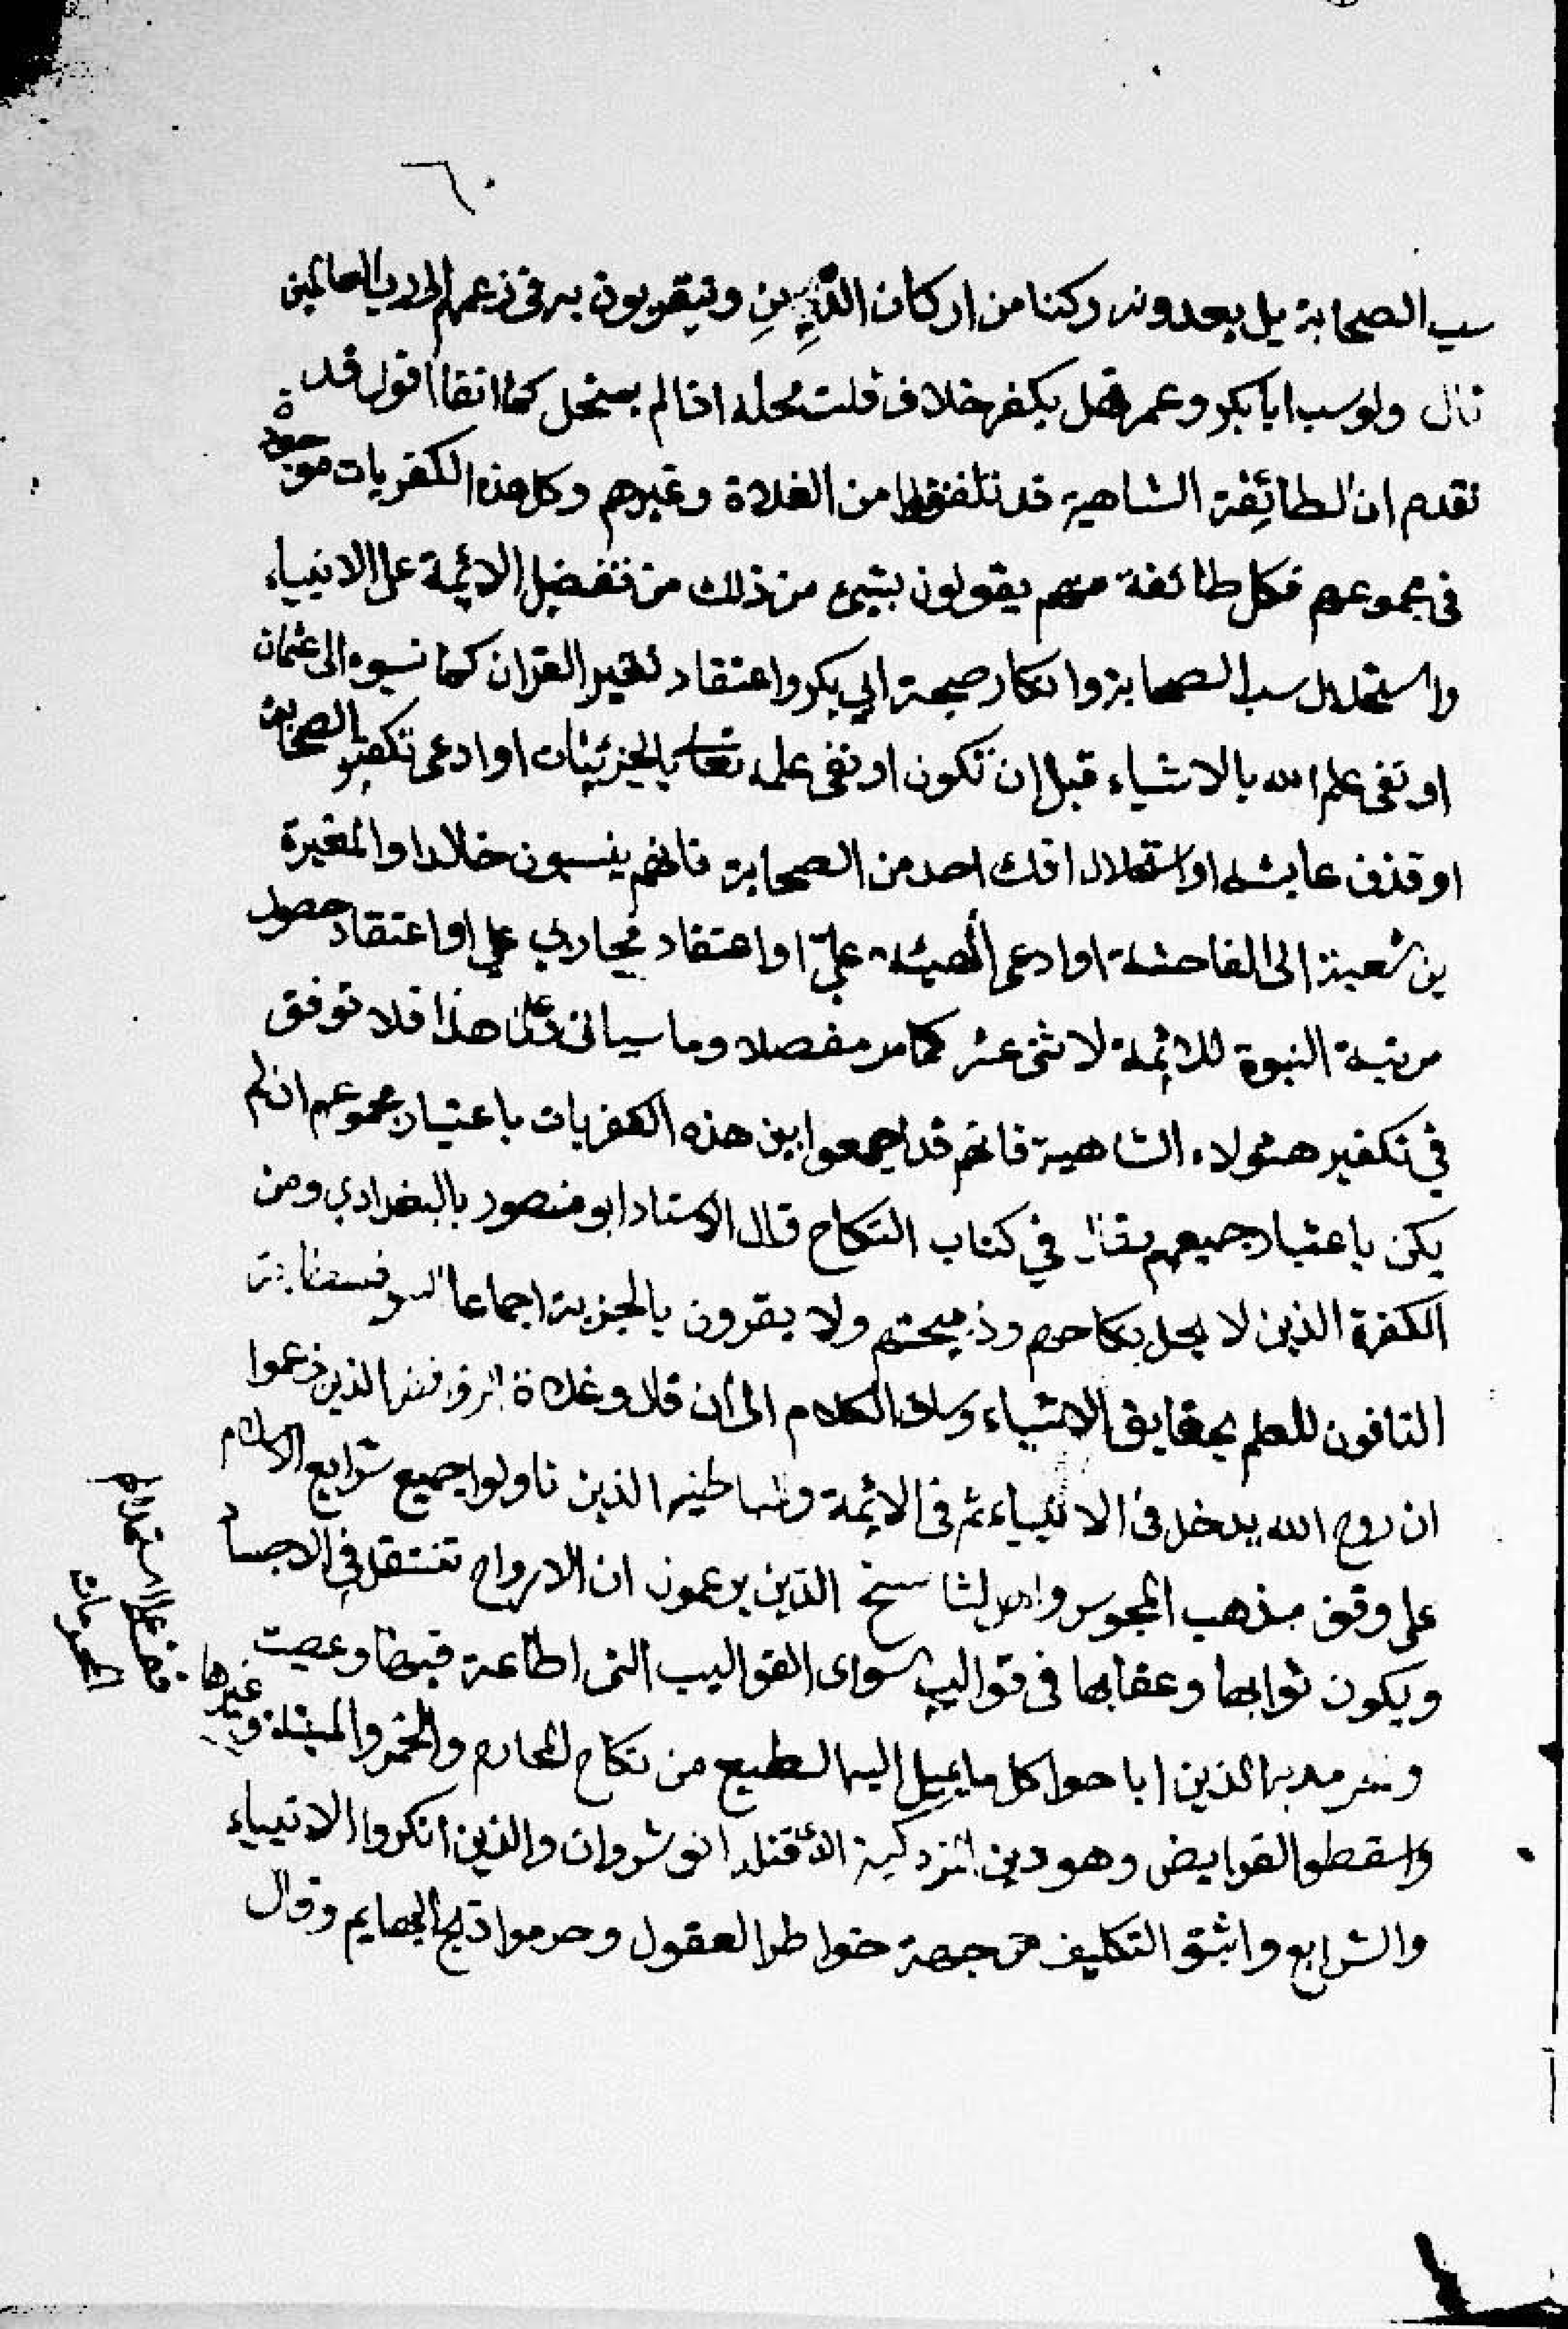 ٦٠
سب الصحابة بل يعدونه ركنا من اركان الدِّينِ ويتقربون به فى زعمهم الى رب العالمين
قال ولو سب ابا بكر وعمر فهل يكفر خلاف قلت محله اذا لم يستحل كما انفا اقول قد
تقدم ان الطائفة الشاهية قد تلفقوا من الغلاة وغيرهم وكل هذه الكفريات موجودة
فى مجموعهم فكل طائفة منهم يقولون بشيئ من ذلك من تفضيل الائمة على الانبياء
واستحلال سب الصحابة وانكار صحبة ابي بكر واعتقاد تغير القران كما نسبوه الى عثمان
او نفى علم الله بالاشياء قبل ان تكون او نفى علمه تعالى بالجزئيات او ادعى تكفير الصحابة
او قذف عايشه او استحلال افك احد من الصحابة فانهم ينسبون خالدا والمغيرة
بن شعبة الى الفاحشة او ادعى الهية علىّ او اعتقاد محاربي علي او اعتقاد حصول
مرتبة النبوة للائمة لاثنى عشر كما مر مفصلا وما سياتى وعلى هذا فلا توقف
في تكفير هئولاء الشاهية فانهم قد اجمعوا بين هذه الكفريات باعتبار مجموعهم ان لم
يكن باعتبار جميعهم يقال في كتاب النكاح قال الاستاد ابو منصور بالبغدادي ومن
الكفرة الذين لا يحل نكاحهم وذبيحتهم ولا يقرون بالجزية اجماعا السوفسطائية
النافون للعلم بحقايق الاشياء وساق الكلام الى أن قال وغلاة الروافض الذين زعموا
ان روح الله يدخل فى الانبياء ثم فى الائمة والباطنيه الذين تاولوا جميع شرايع الاسلام
على وفق مذهب المجوس واهل التناسخ الذين يزعمون ان الارواح تنتقل في الاجساد
ويكون ثوابها وعقابها فى قواليب سواى القواليب التى اطاعة فيها وعصت
الذين اباحوا كل ما يميل اليه الطبع من نكاح المحارم والخمر والميتة وغيرها
واسقطو الفرايض وهو دين المزدكية الأ قتلد انوشروان والذين انكروا الانبياء
والشرايع واثبتو التكليف من جهة خواطر العقول وحرموا ذبح البهايم وقال